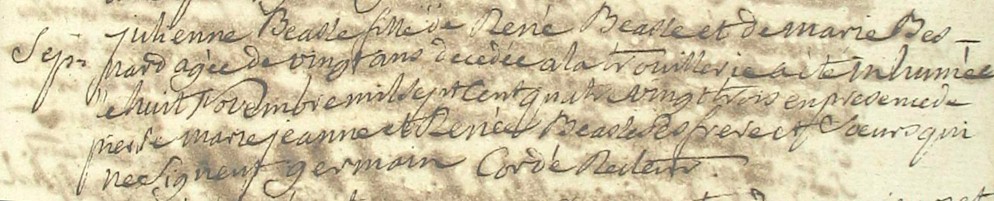 julienne Beasle fille de René Beasle et de marie Bes-
Sepre nard agée de vingt ans decedée a la trouillerie a été inhumée
le huit Novembre mil sept Cent quatre vingt trois en presence de
pierre marie jeanne et Renée Beasle ses frere et Soeurs qui
ne Signent germain Cordé Recteur.